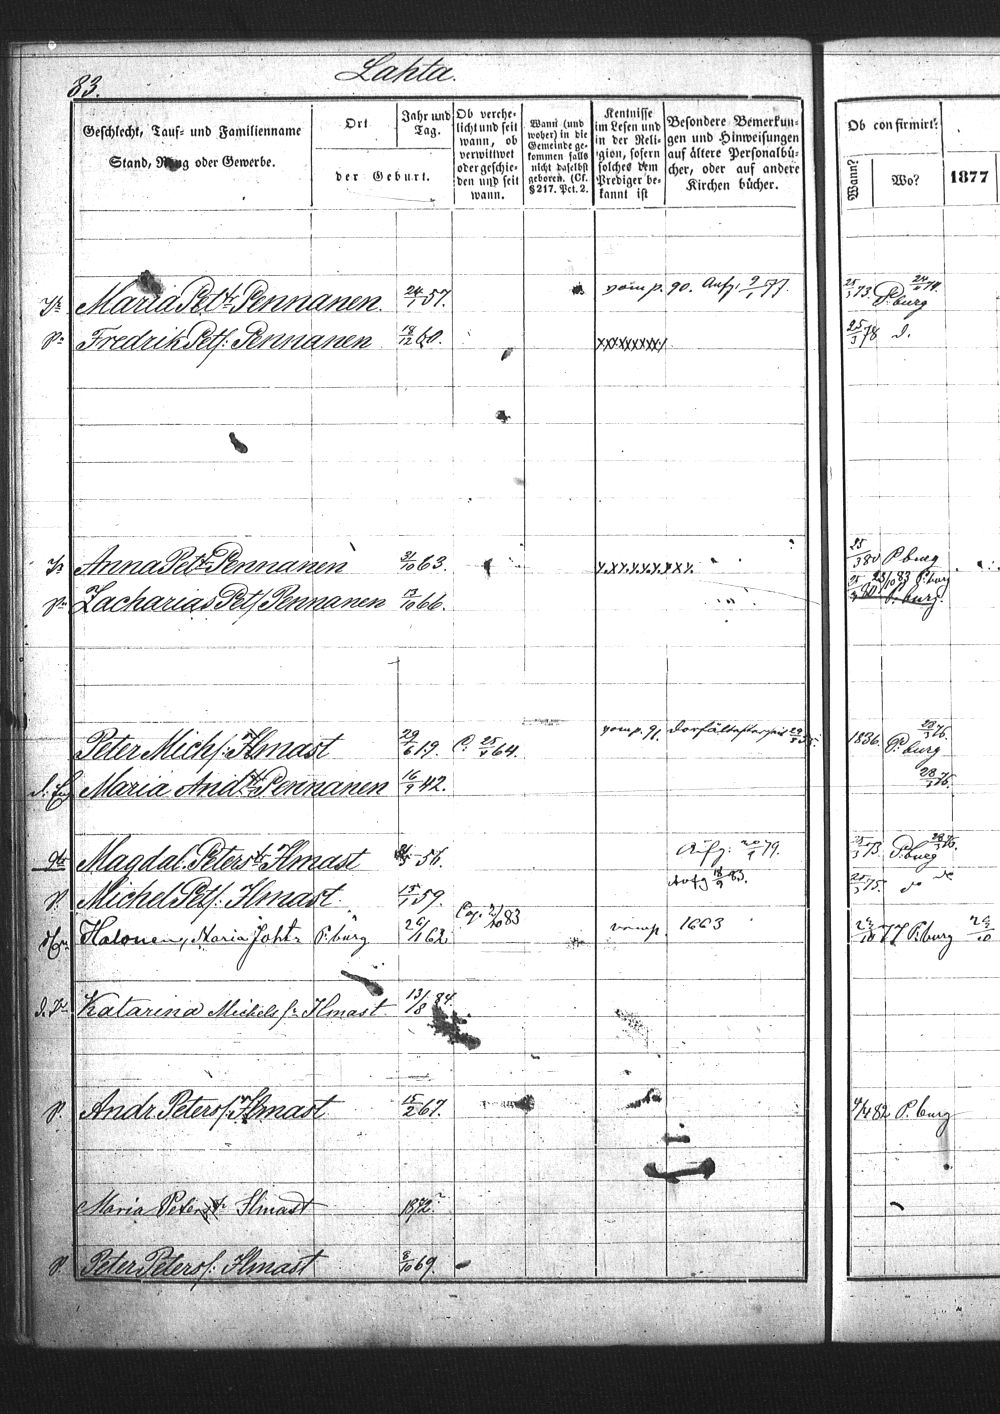 83.
Lahta.
Geschlecht, Tauf- und Familienname
Stand, Rang oder Gewerbe.
Ort
der Geburt.
Jahr und
Tag.
Ob verehe-
licht und seit
wann, ob
verwittwet
oder geschie-
den und seit
wann.
Wann (und
woher) in die
Gemeinde ge-
kommen falls
nicht daselbst
geboren. (Cf.
§ 217. Pct. 2.
Kentnisse
im Lesen und
in der Reli-
gion, sofern
solches dem
Prediger be-
kannt ist
Besondere Bemerkun-
gen und Hinweisungen
auf ältere Personalbü-
cher, oder auf andere
Kirchen bücher.
Ob confirmirt?
Wann?
Wo?
1877
Maria Pet. Pennanen. 24/1 57. vom p. 90. Aufg. 9/1 77. 25/3 73. P. burg
Fredrik Petf: Pennanen 18/12 60. xxxxxxxx 25/3 78 d.
Anna Pet Pennanen 31/10 63. x.x.x.x.x.x.x. 25/3 80 P. burg
Zacharias Petf Pennanen 13/10 66. 23/10 83 P. burg
P. burg.
Peter Michf: Ilmast 29/6 19. C. 25/1 64. vom p. 91. 1836. P. burg 28/1 76.
Maria And Pennanen 16/9 42. 28/1 76.
Magdal. Peters Ilmast 56. Aufg. 79. 25/3 73 P. burg 28/1 76.
Michel Petf: Ilmast. 15/1 59. Aufg 18/9 83. 25/3 75. do do
Halonen, Maria Joh P. burg 26/1 62 Cop. 2/10 83 vom p. 1663 77 P. burg
Katarina Michels Ilmast 13/8 84.
Andr. Petersf: Ilmast 15/2 67. 4/4 82 P. burg
Maria Peters Ilmast 1872.
Peter Petersf: Ilmast 8/10 69